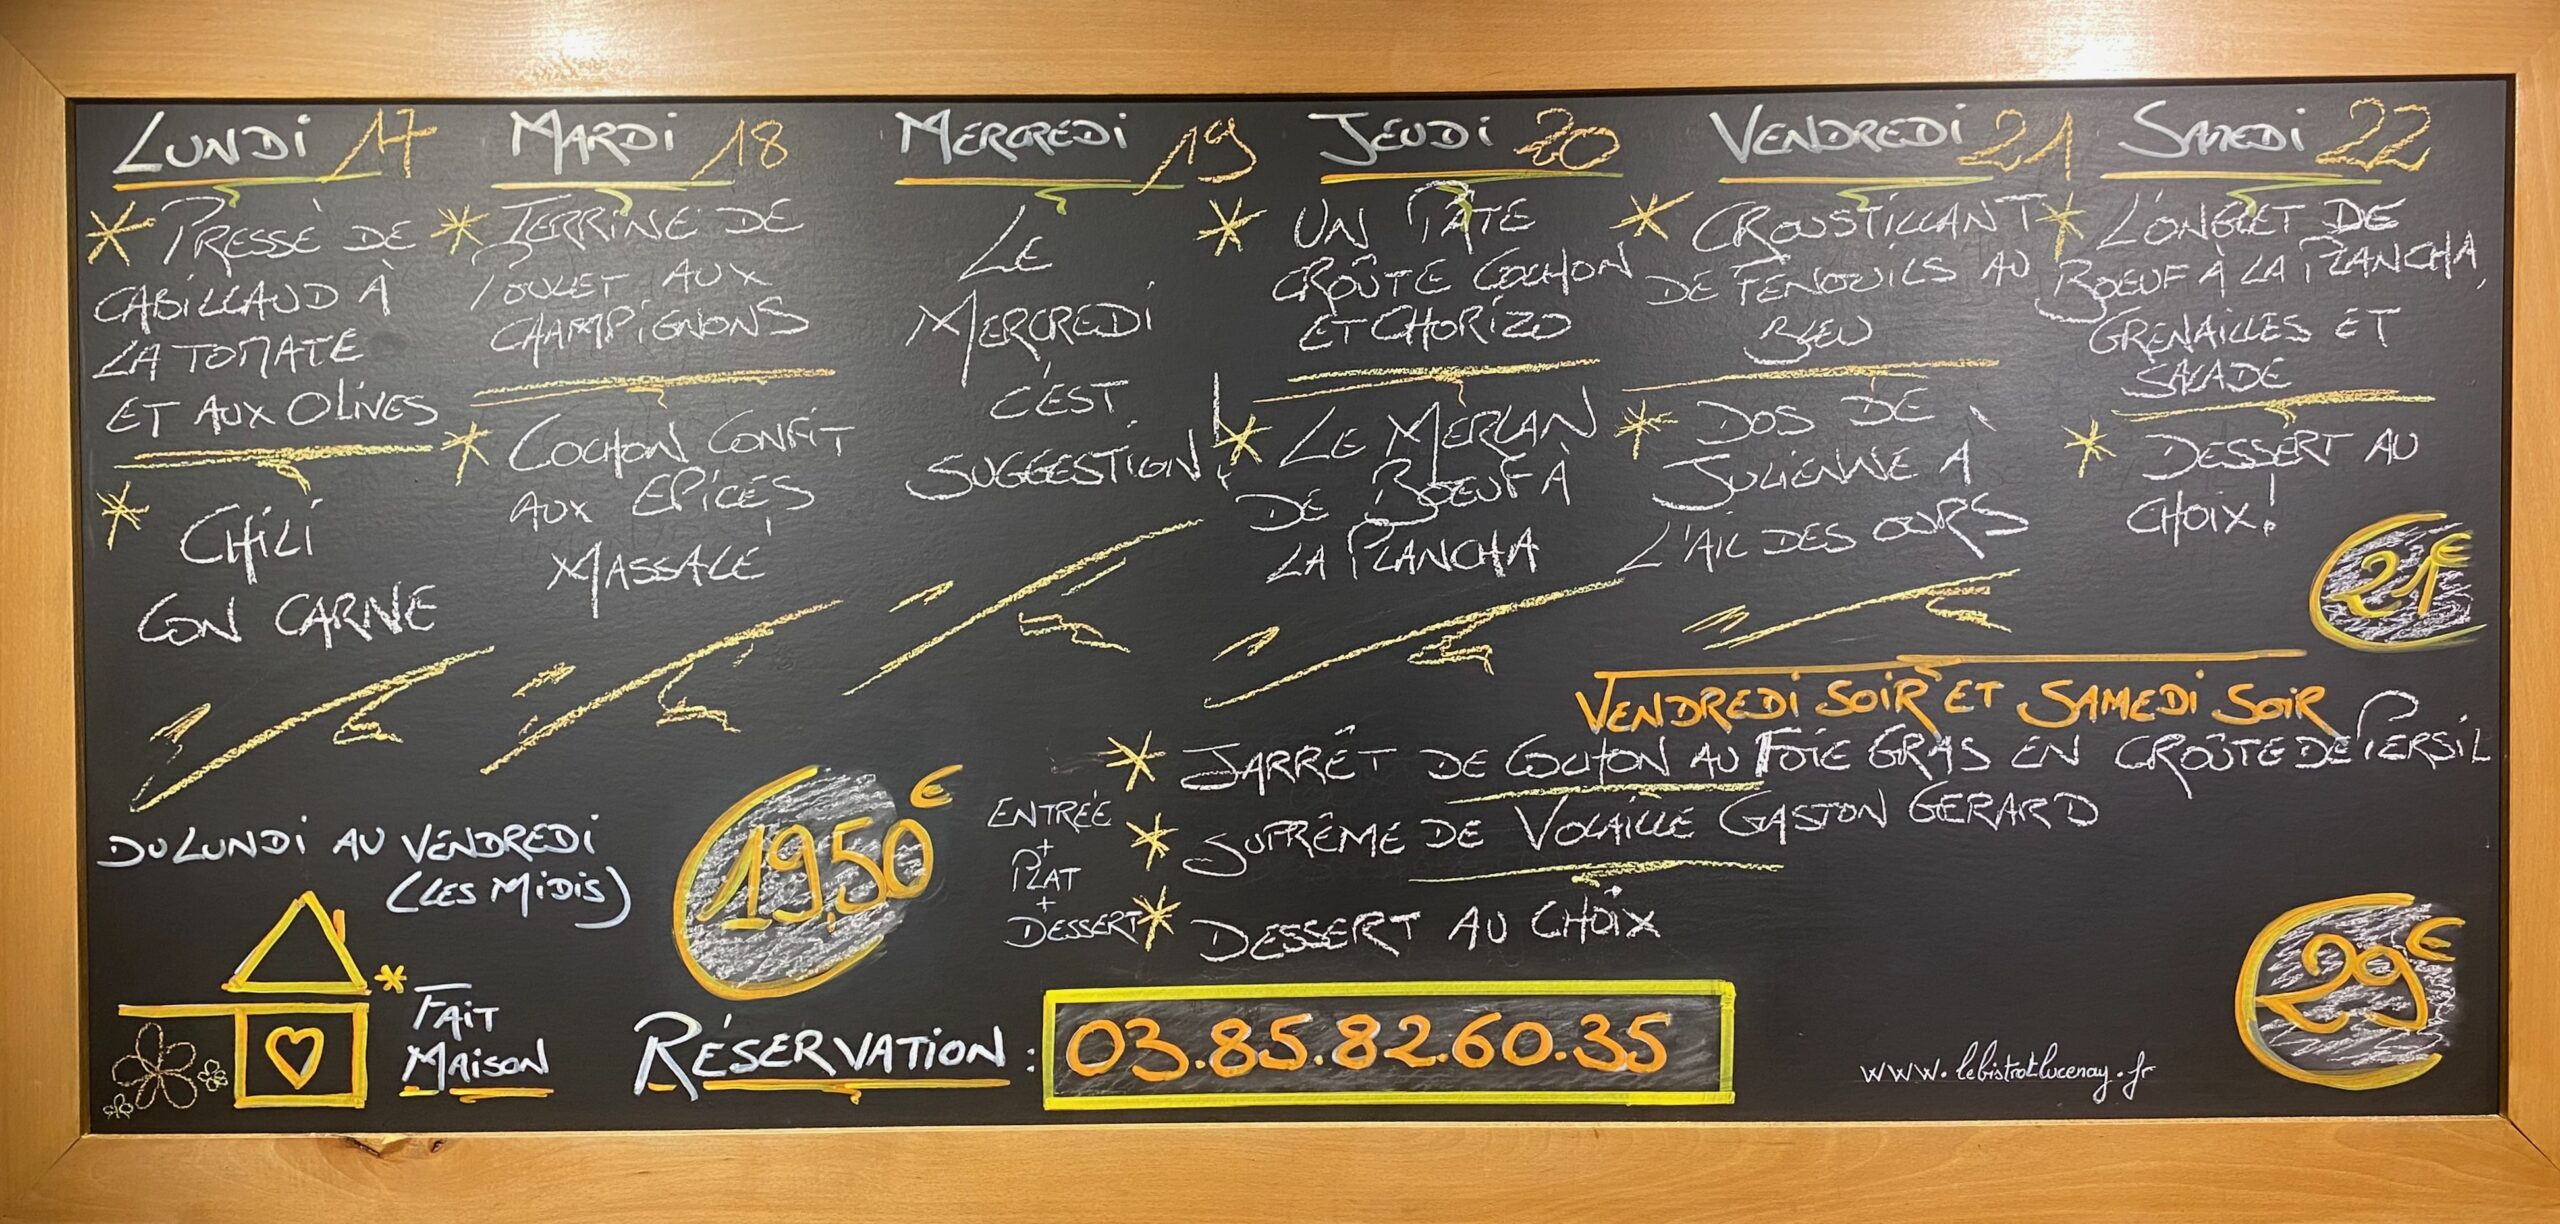 LUNDI 17
* PRESSÈ DE
CABILLAUD À
LA TOMATE
ET AUX OLIVES
* CHILI
CON CARNE
MARDI 18
* TERRINE DE
POULET AUX
CHAMPIGNONS
* COCHON CONFIT
AUX EPICES
MASSALÉ
MERCREDI 19
LE
MERCREDI
C'EST
SUGGESTION!
JEUDI 20
* UN PÂTE
CROÛTE COCHON
ET CHORIZO
* LE MERLAN
DE BOEUF À
LA PLANCHA
VENDREDI 21
* CROUSTILLANT
DE FENOUILS AU
BLEU
* DOS DE
JULIENNE À
L'AIL DES OURS
SAMEDI 22
* L'ONGLET DE
BOEUF À LA PLANCHA,
GRENAILLES ET
SALADE
* DESSERT AU
CHOIX!
21€
VENDREDI SOIR ET SAMEDI SOIR
* JARRÊT DE COCHON AU FOIE GRAS EN CROÛTE DE PERSIL
* SUPRÊME DE VOLAILLE GASTON GERARD
* DESSERT AU CHOIX
29€
DU LUNDI AU VENDREDI
(LES MIDIS)
19,50€
ENTRÉE
+
PLAT
+
DESSERT
* FAIT
MAISON
RÉSERVATION : 03.85.82.60.35
www.lebistrotlucenay.fr